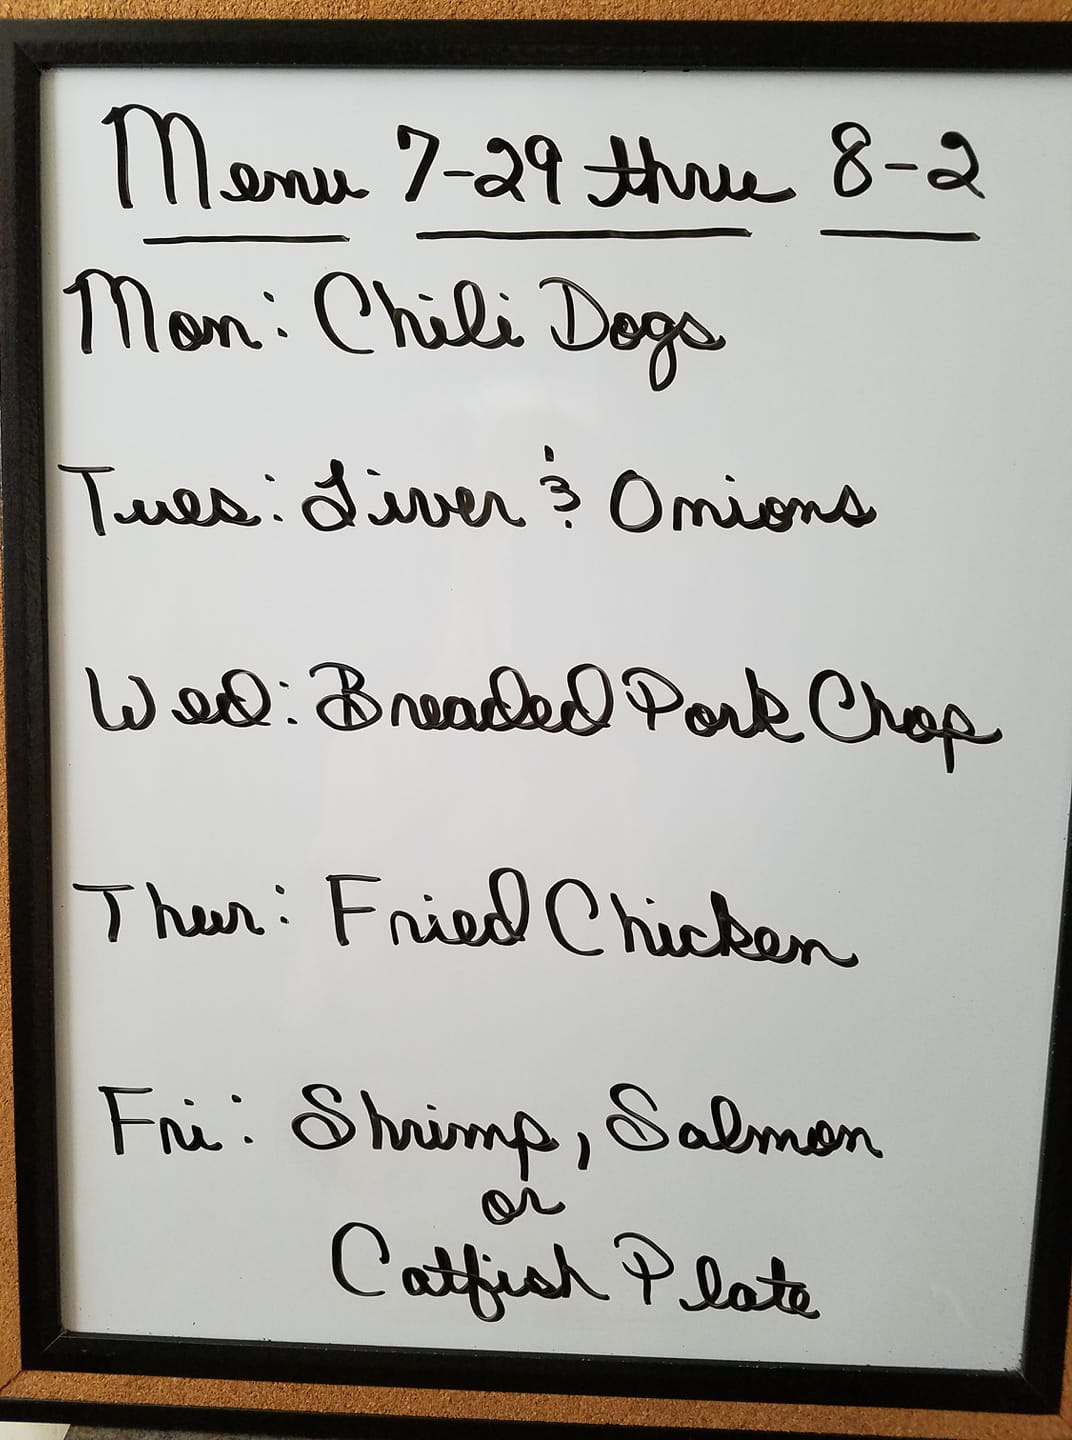 Menu 7-29 thru 8-2
Mon: Chili Dogs
Tues: Liver & Onions
Wed: Breaded Pork Chop
Thur: Fried Chicken
Fri: Shrimp, Salmon
or
Catfish Plate